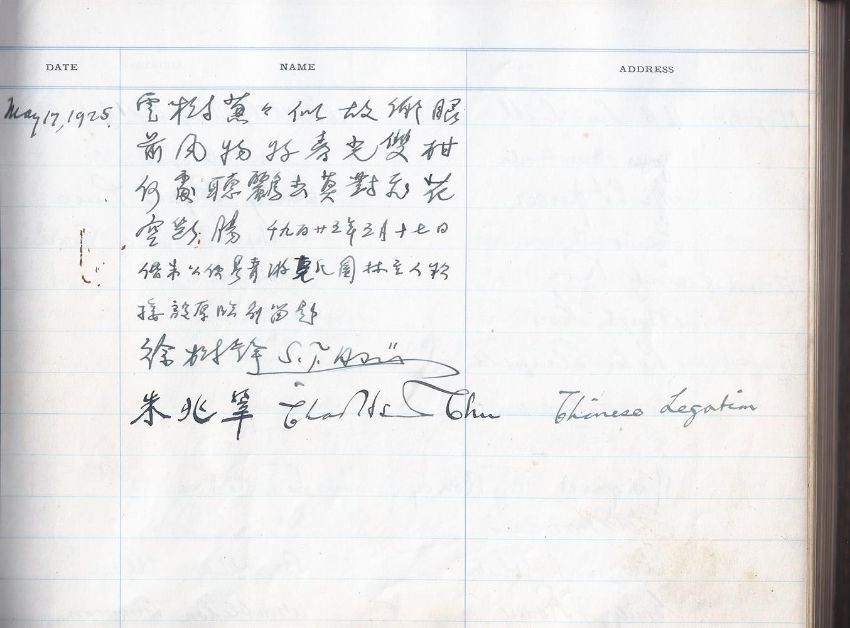 DATE NAME ADDRESS
May 17, 1925. 雲樹蔥々似故鄉眼
前風物好春光雙柑
何處聽鸝去莫對飛花
空斷腸 千九百廿五年五月十七日
偕朱公使 游 氏園林主人款
接殷厚臨別留題
徐樹錚 S. T. Hsü
朱兆莘 Chao-Hsin Chu Chinese Legation